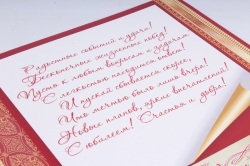 Радостных событий и удачи!
Бесконечных жизненных побед!
Пусть к любым вопросам и задачам
С легкостью находится ответ!
И пускай сбывается скорее,
Что мечтою было лишь вчера!
Новых планов, ярких впечатлений!
С юбилеем! Счастья и добра!